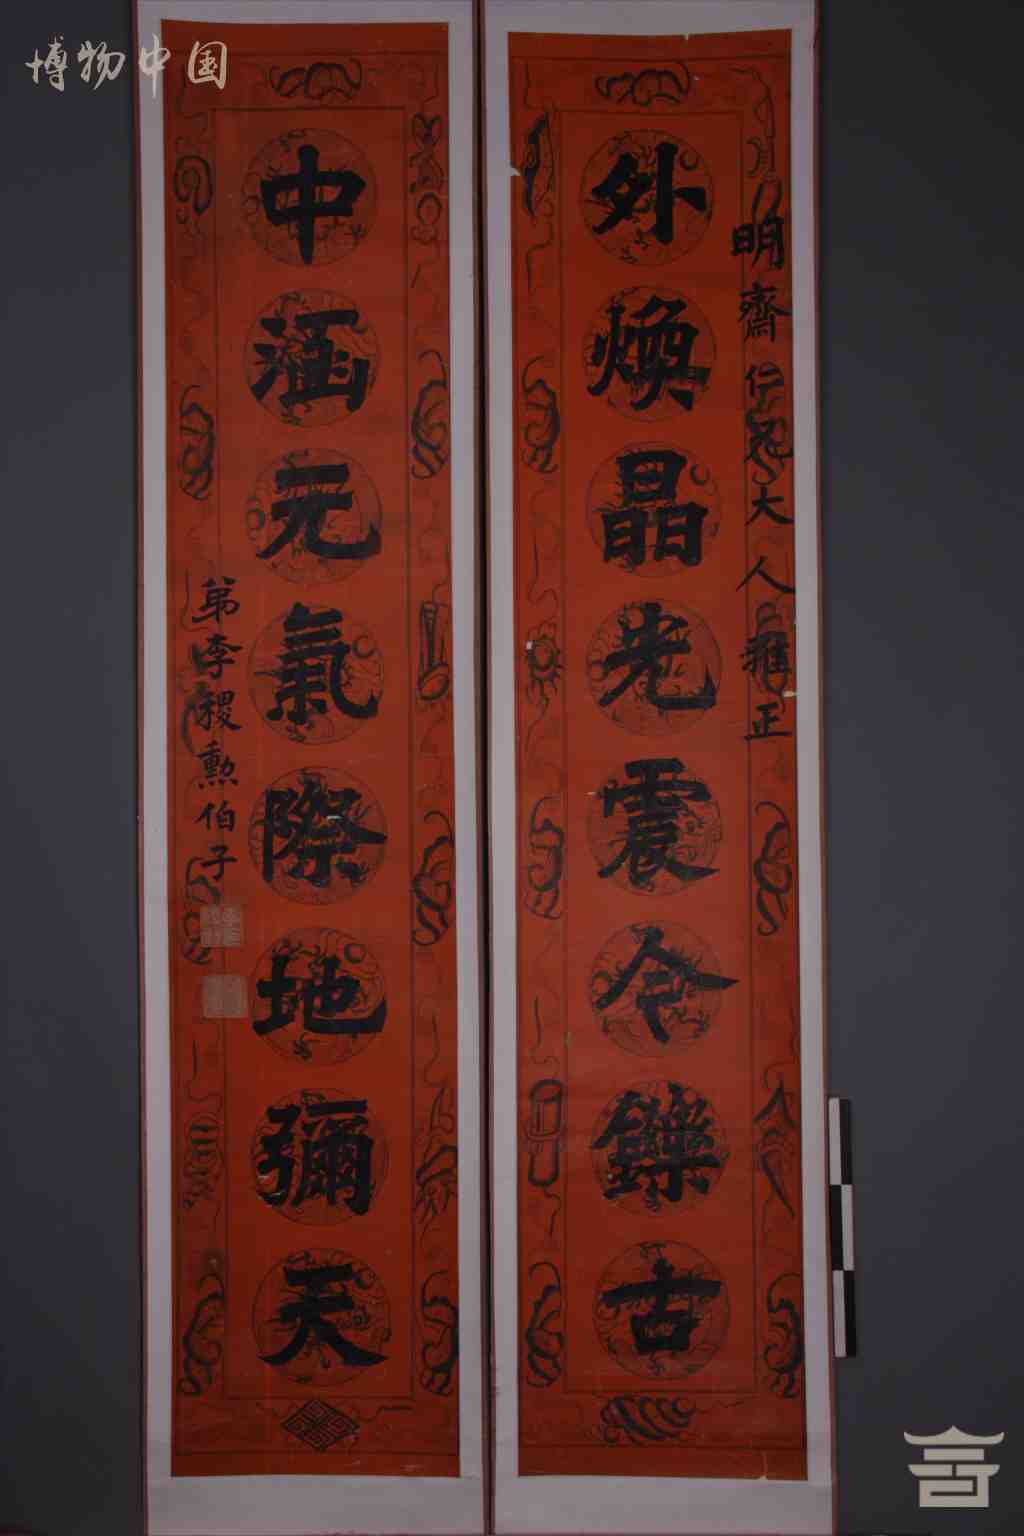 博物中国
明齋仁兄大人雅正
外煥晶光震今鑠古
中涵元氣際地彌天
弟李稷勲伯子